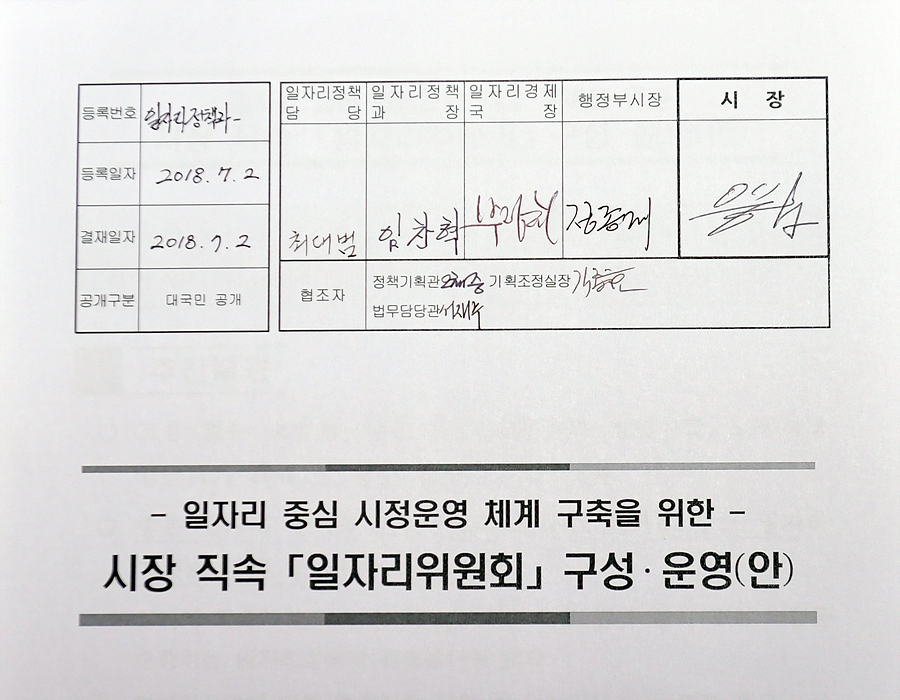 등록번호 일자리정책과-
등록일자 2018. 7. 2
결재일자 2018. 7. 2
공개구분 대국민 공개
일자리정책담당 일자리정책과장 일자리경제국장 행정부시장 시 장
최대범 임창혁
협조자 정책기획관 기획조정실장
법무담당관
- 일자리 중심 시정운영 체계 구축을 위한 -
시장 직속 「일자리위원회」 구성·운영(안)